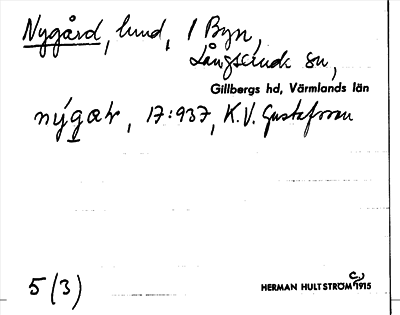 Nygård, lund, 1 Byn,
Långserud sn,
Gillbergs hd, Värmlands län
nýgaṯr, 17:937, K.V. Gustafsson
5 (3)
HERMAN HULTSTRÖM 1915